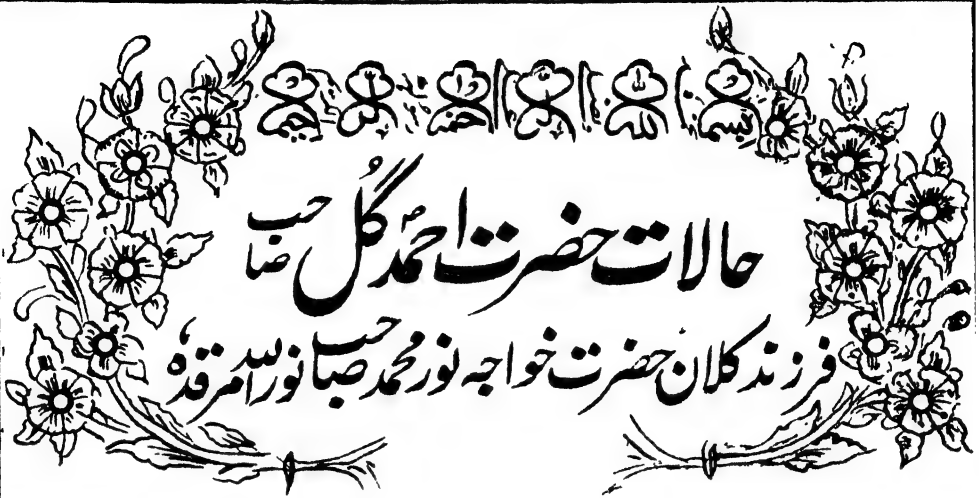 بسم الله الرحمن الرحيم
حالات حضرت احمدؐ گُل صاحب
فرزند کلان حضرت خواجہ نور محمد صاحب نور اللہ مرقدہٗ